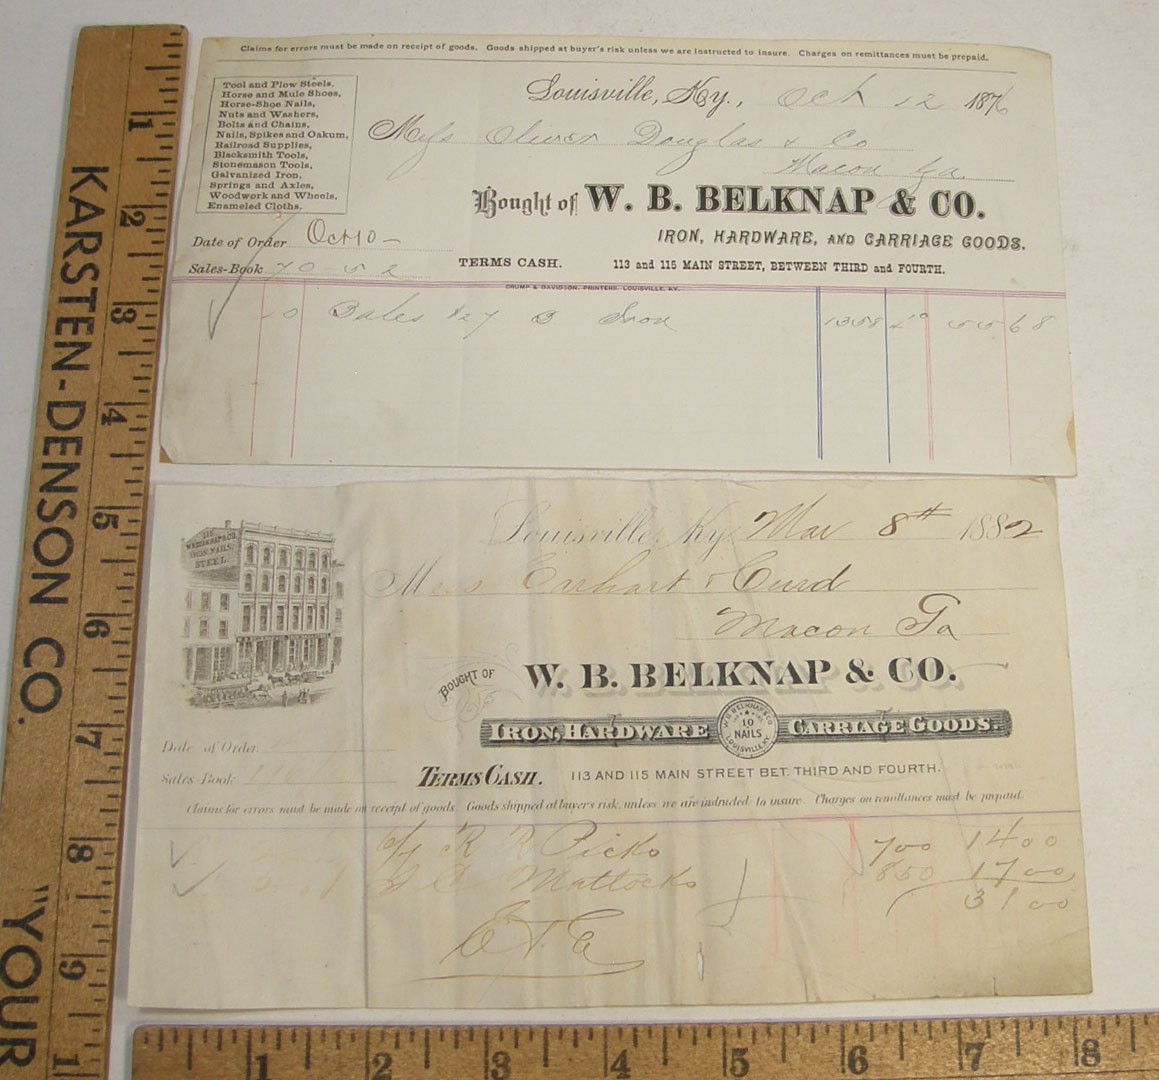 Claims for errors must be made on receipt of goods. Goods shipped at buyer's risk unless we are instructed to insure. Charges on remittances must be prepaid.
Tool and Plow Steels,
Horse and Mule Shoes,
Horse-Shoe Nails,
Nuts and Washers,
Bolts and Chains,
Nails, Spikes and Oakum,
Railroad Supplies,
Blacksmith Tools,
Stonemason Tools,
Galvanized Iron,
Springs and Axles,
Woodwork and Wheels,
Enameled Cloths.
Louisville, Ky., Oct 12 1876
Messs Oliver Douglas & Co
Macon Ga.
Bought of W. B. BELKNAP & CO.
IRON, HARDWARE, AND CARRIAGE GOODS.
Date of Order Oct 10
Sales-Book 70-52
TERMS CASH. 113 and 115 MAIN STREET, BETWEEN THIRD and FOURTH.
CRUMP & DAVIDSON, PRINTERS, LOUISVILLE, KY.
10 Bales 127 B Iron 1358 55 68
Louisville, Ky. Mar 8th 1882
Mess Earhart & Curd
Macon Ga
W.B. BELKNAP & CO.
IRON NAILS
STEEL
BOUGHT OF W. B. BELKNAP & CO.
IRON, HARDWARE CARRIAGE GOODS.
W B BELKNAP & CO
10
NAILS
LOUISVILLE, KY.
Date of Order
Sales-Book
TERMS CASH. 113 AND 115 MAIN STREET BET. THIRD AND FOURTH.
Claims for errors must be made on receipt of goods. Goods shipped at buyer's risk, unless we are instructed to insure. Charges on remittances must be prepaid.
R R Picks 700 1400
Mattocks 850 1700
3100
KARSTEN-DENSON CO. "YOUR
1 2 3 4 5 6 7 8 9 1
1 2 3 4 5 6 7 8